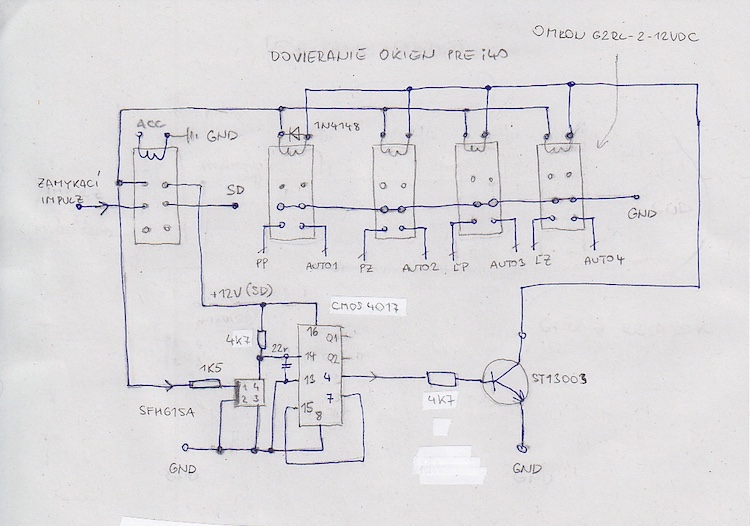 OMRON G2RL-2-12VDC
DOVIERANIE OKIEN PRE i40
ACC
GND
1N4148
ZAMYKACÍ
IMPULZ
SD
GND
PP
AUTO1
PZ
AUTO2
ĽP
AUTO3
ĽZ
AUTO4
+12V (SD)
CMOS 4017
16
Q1
4K7
22n
14
Q2
13
4
1K5
1 4
2 3
7
15
8
SFH615A
4K7
ST13003
GND
GND